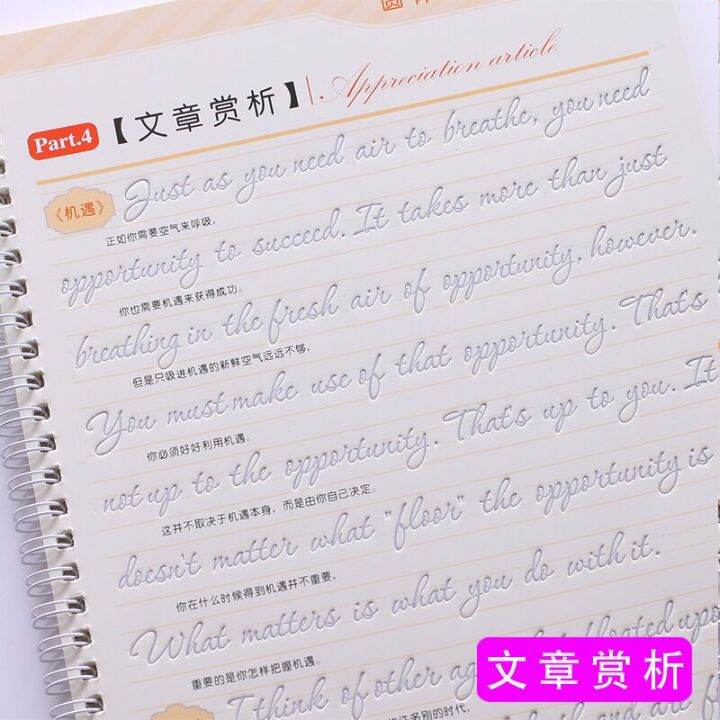 Part.4 【文章赏析】 Appreciation article
Just as you need air to breathe, you need
《机遇》
正如你需要空气来呼吸，
opportunity to succeed. It takes more than just
你也需要机遇来获得成功。
breathing in the fresh air of opportunity, however.
但是只吸进机遇的新鲜空气远远不够，
You must make use of that opportunity. That's
你必须好好利用机遇。
not up to the opportunity. That's up to you. It
这并不取决于机遇本身，而是由你自己决定。
doesn't matter what "floor" the opportunity is
你在什么时候得到机遇并不重要，
What matters is what you do with it.
重要的是你怎样把握机遇。
I think of other floated upo
许多别的时代，
and are f
文章赏析